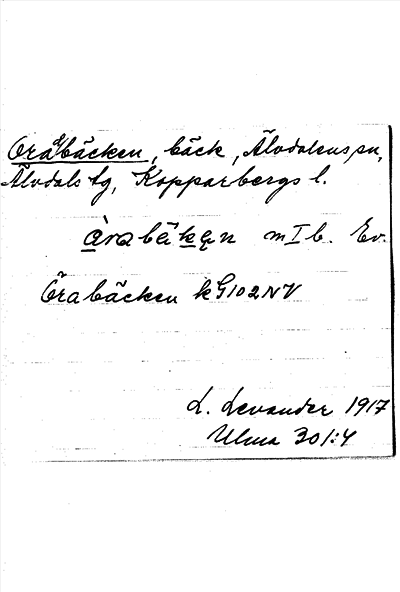 Öråbäcken, bäck, Älvdalens sn,
Älvdals tg, Kopparbergs l.
àrabẹ̈kẹn mIb. Ev.
Örabäcken kG102NV
L. Levander 1917
Ulma 301:4